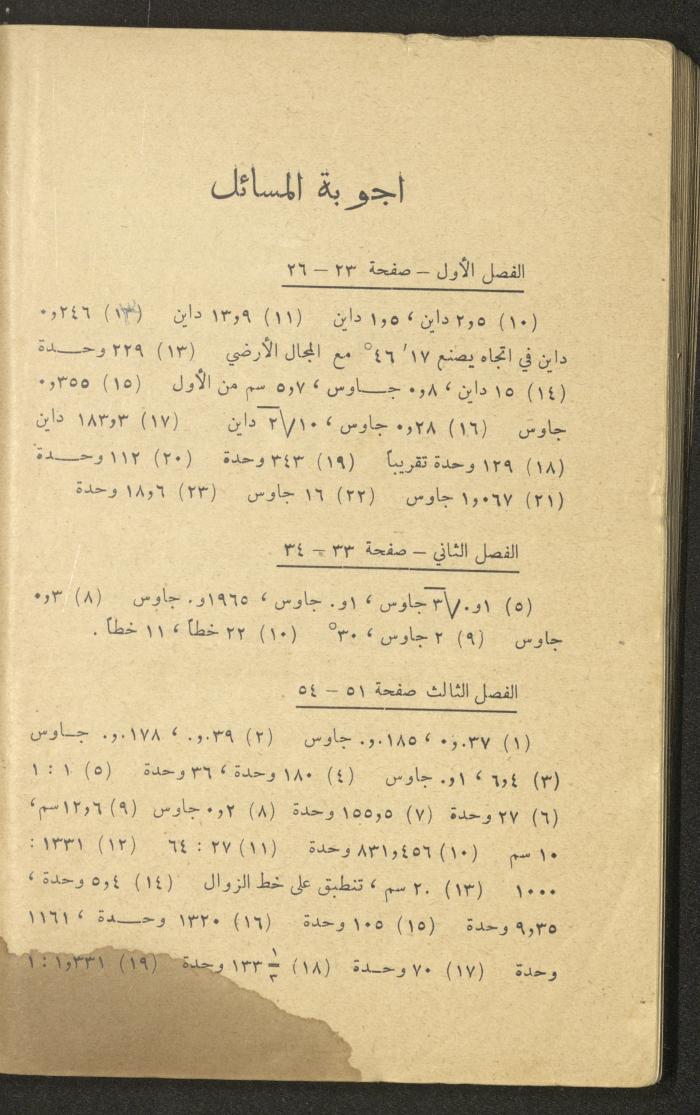 اجوبة المسائل
الفصل الأول – صفحة ٢٣ – ٢٦
(١٠) ٢,٥ داين ، ١,٥ داين (١١) ١٣,٩ داين (١٢) ٠,٢٤٦
داين في اتجاه يصنع ١٧′ ٤٦° مع المجال الأرضي (١٣) ٢٢٩ وحـــدة
(١٤) ١٥ داين ، ٠,٨ جـــاوس ، ٥,٧ سم من الأول (١٥) ٠,٣٥٥
جاوس (١٦) ٠,٢٨ جاوس ، ١٠√٢ داين (١٧) ١٨٣,٣ داين
(١٨) ١٢٩ وحدة تقريباً (١٩) ٣٤٣ وحدة (٢٠) ١١٢ وحـــدة
(٢١) ١,٠٦٧ جاوس (٢٢) ١٦ جاوس (٢٣) ١٨,٦ وحدة
الفصل الثاني – صفحة ٣٣ – ٣٤
(٥) ١و.√٣ جاوس ، ١و. جاوس ، ١٩٦٥و. جاوس (٨) ٠,٣
جاوس (٩) ٢ جاوس ، ٣٠° (١٠) ٢٢ خطاً ، ١١ خطاً .
الفصل الثالث صفحة ٥١ – ٥٤
(١) ٠,٠٣٧ ، ٠,٠١٨٥ جاوس (٢) ٠,٠٣٩ ، ٠,٠١٧٨ جـاوس
(٣) ٦,٤ ، ١و. جاوس (٤) ١٨٠ وحدة ، ٣٦ وحدة (٥) ١ : ١
(٦) ٢٧ وحدة (٧) ١٥٥,٥ وحدة (٨) ٠,٢ جاوس (٩) ١٢,٦ سم ،
١٠ سم (١٠) ٨٣١,٤٥٦ وحدة (١١) ٢٧ : ٦٤ (١٢) ١٣٣١ :
١٠٠٠ (١٣) ٢٠ سم ، تنطبق على خط الزوال (١٤) ٥,٤ وحدة ،
٩,٣٥ وحدة (١٥) ١٠٥ وحدة (١٦) ١٣٢٠ وحـــدة ، ١١٦١
وحدة (١٧) ٧٠ وحـدة (١٨) ١٣٣ ١/٣ وحدة (١٩) ١,٣٣١ : ١